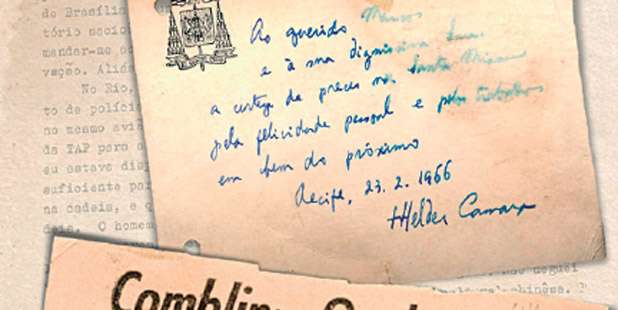 de Brasília
tório nacio
mandar-me
vação. Aliá
No Rio,
to de políci
no mesmo avi
da TAP para
eu estava dis
suficiente pa
na cadeia, e q
dois. O homem
Ao querido Marcos
e à sua digníssima
a certeza de preces na Santa Missa
pela felicidade pessoal e pelos trabalhos
em bem do próximo
Recife, 23. 2. 1966
+Helder Camara
neguei
chinêsa. ?
Comblin